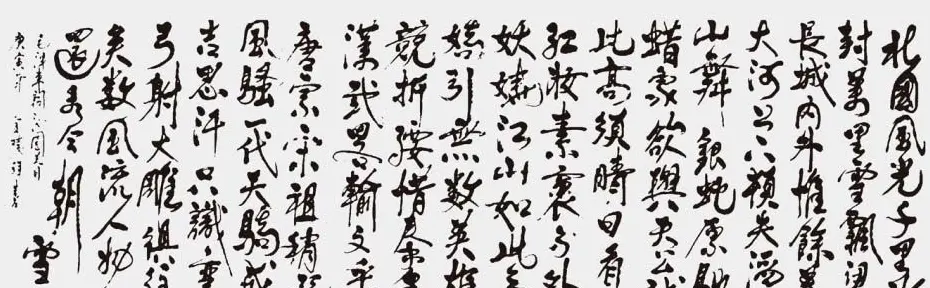 北國風光千里
封萬里雪飄望
長城内外惟餘
大河上下頓失滔
山舞銀蛇原馳
蜡象欲與天公試
比高須晴日看
紅妝素裹分外
妖嬈江山如此
嬌引無數英雄
競折腰惜秦皇
漢武略輸文采
唐宗宋祖稍
風騷一代天驕成
吉思汗只識彎
弓射大雕俱往
矣數風流人物
還看今朝
雪
毛澤東詞沁園春
庚寅年